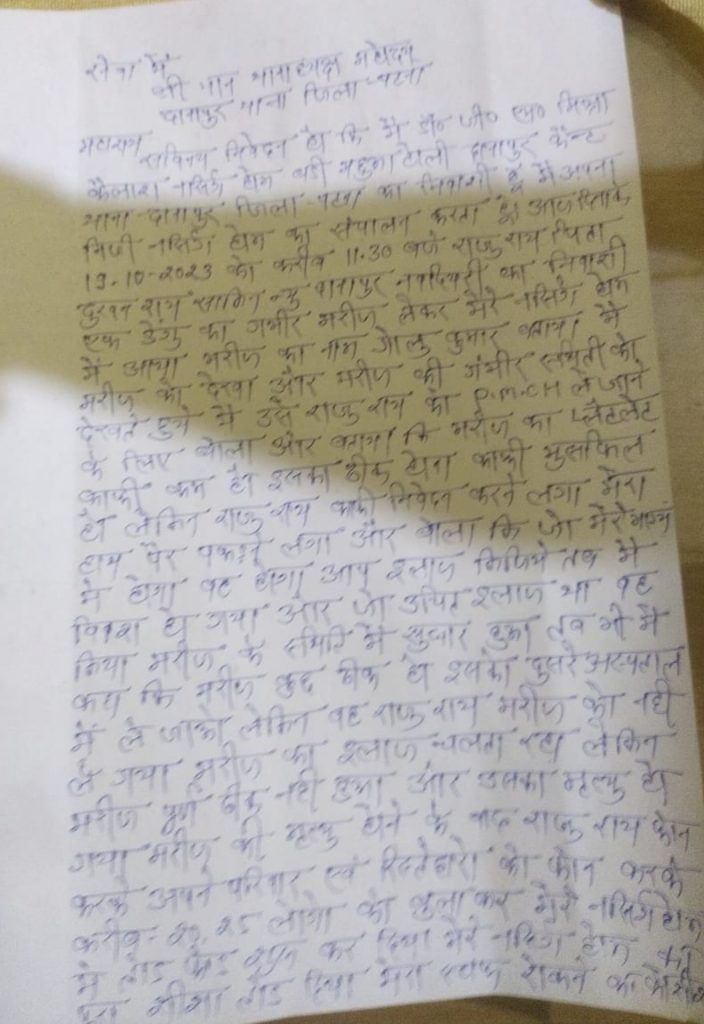 सेवा में
श्री मान थानाध्यक्ष महोदय
दानापुर थाना जिला-पटना
महाशय
सविनय निवेदन है कि मैं डॉ० जी० एम० मिश्रा
कैलाश नर्सिंग होम बड़ी महुआ टोली दानापुर कैन्ट
थाना दानापुर जिला-पटना का निवासी हूँ मैं अपना
निजी नर्सिंग होम का संचालन करता हूँ। आज दिनांक
19-10-2023 को करीब 11.30 बजे राजु राय पिता
राय साकिन न्यु दानापुर का निवासी
एक डेंगु का गंभीर मरीज लेकर मेरे नर्सिंग होम
में आया मरीज का नाम गोलु कुमार बताया मैं
मरीज को देखा और मरीज की गंभीर स्थिती को
देखते हुये मैं उसे राजु राय को P.M.C.H ले जाने
के लिए बोला और बताया कि मरीज का प्लेटलेट
काफी कम है। इसका ठीक होना काफी मुसकिल
है। लेकिन राजु राय काफी निवेदन करने लगा मेरा
हाथ पैर पकड़ने लगा और बोला कि जो मेरे भाग्य
में होगा वह होगा आप इलाज किजिये तब मैं
विवश हो गया और जो उचित इलाज था वह
किया मरीज के स्थिति में सुधार हुआ तब भी मैं
कहा कि मरीज कुछ ठीक है इसको दुसरे अस्पताल
में ले जाओ लेकिन वह राजु राय मरीज को नही
ले गया मरीज का इलाज चलता रहा लेकिन
मरीज पूर्ण ठीक नही हुआ और उसका मृत्यु हो
गया मरीज की मृत्यु होने के बाद राजु राय फोन
करके अपने परिवार एवं रिश्तेदारो को फोन करके
करीब- 20, 25 लोगो को बुला कर मेरे नर्सिंग होम
में तोड़ फोड़ शुरु कर दिया मेरे नर्सिंग होम का
पुरा सीसा तोड़ दिया मेरा स्टाफ रोकने का कोशिश